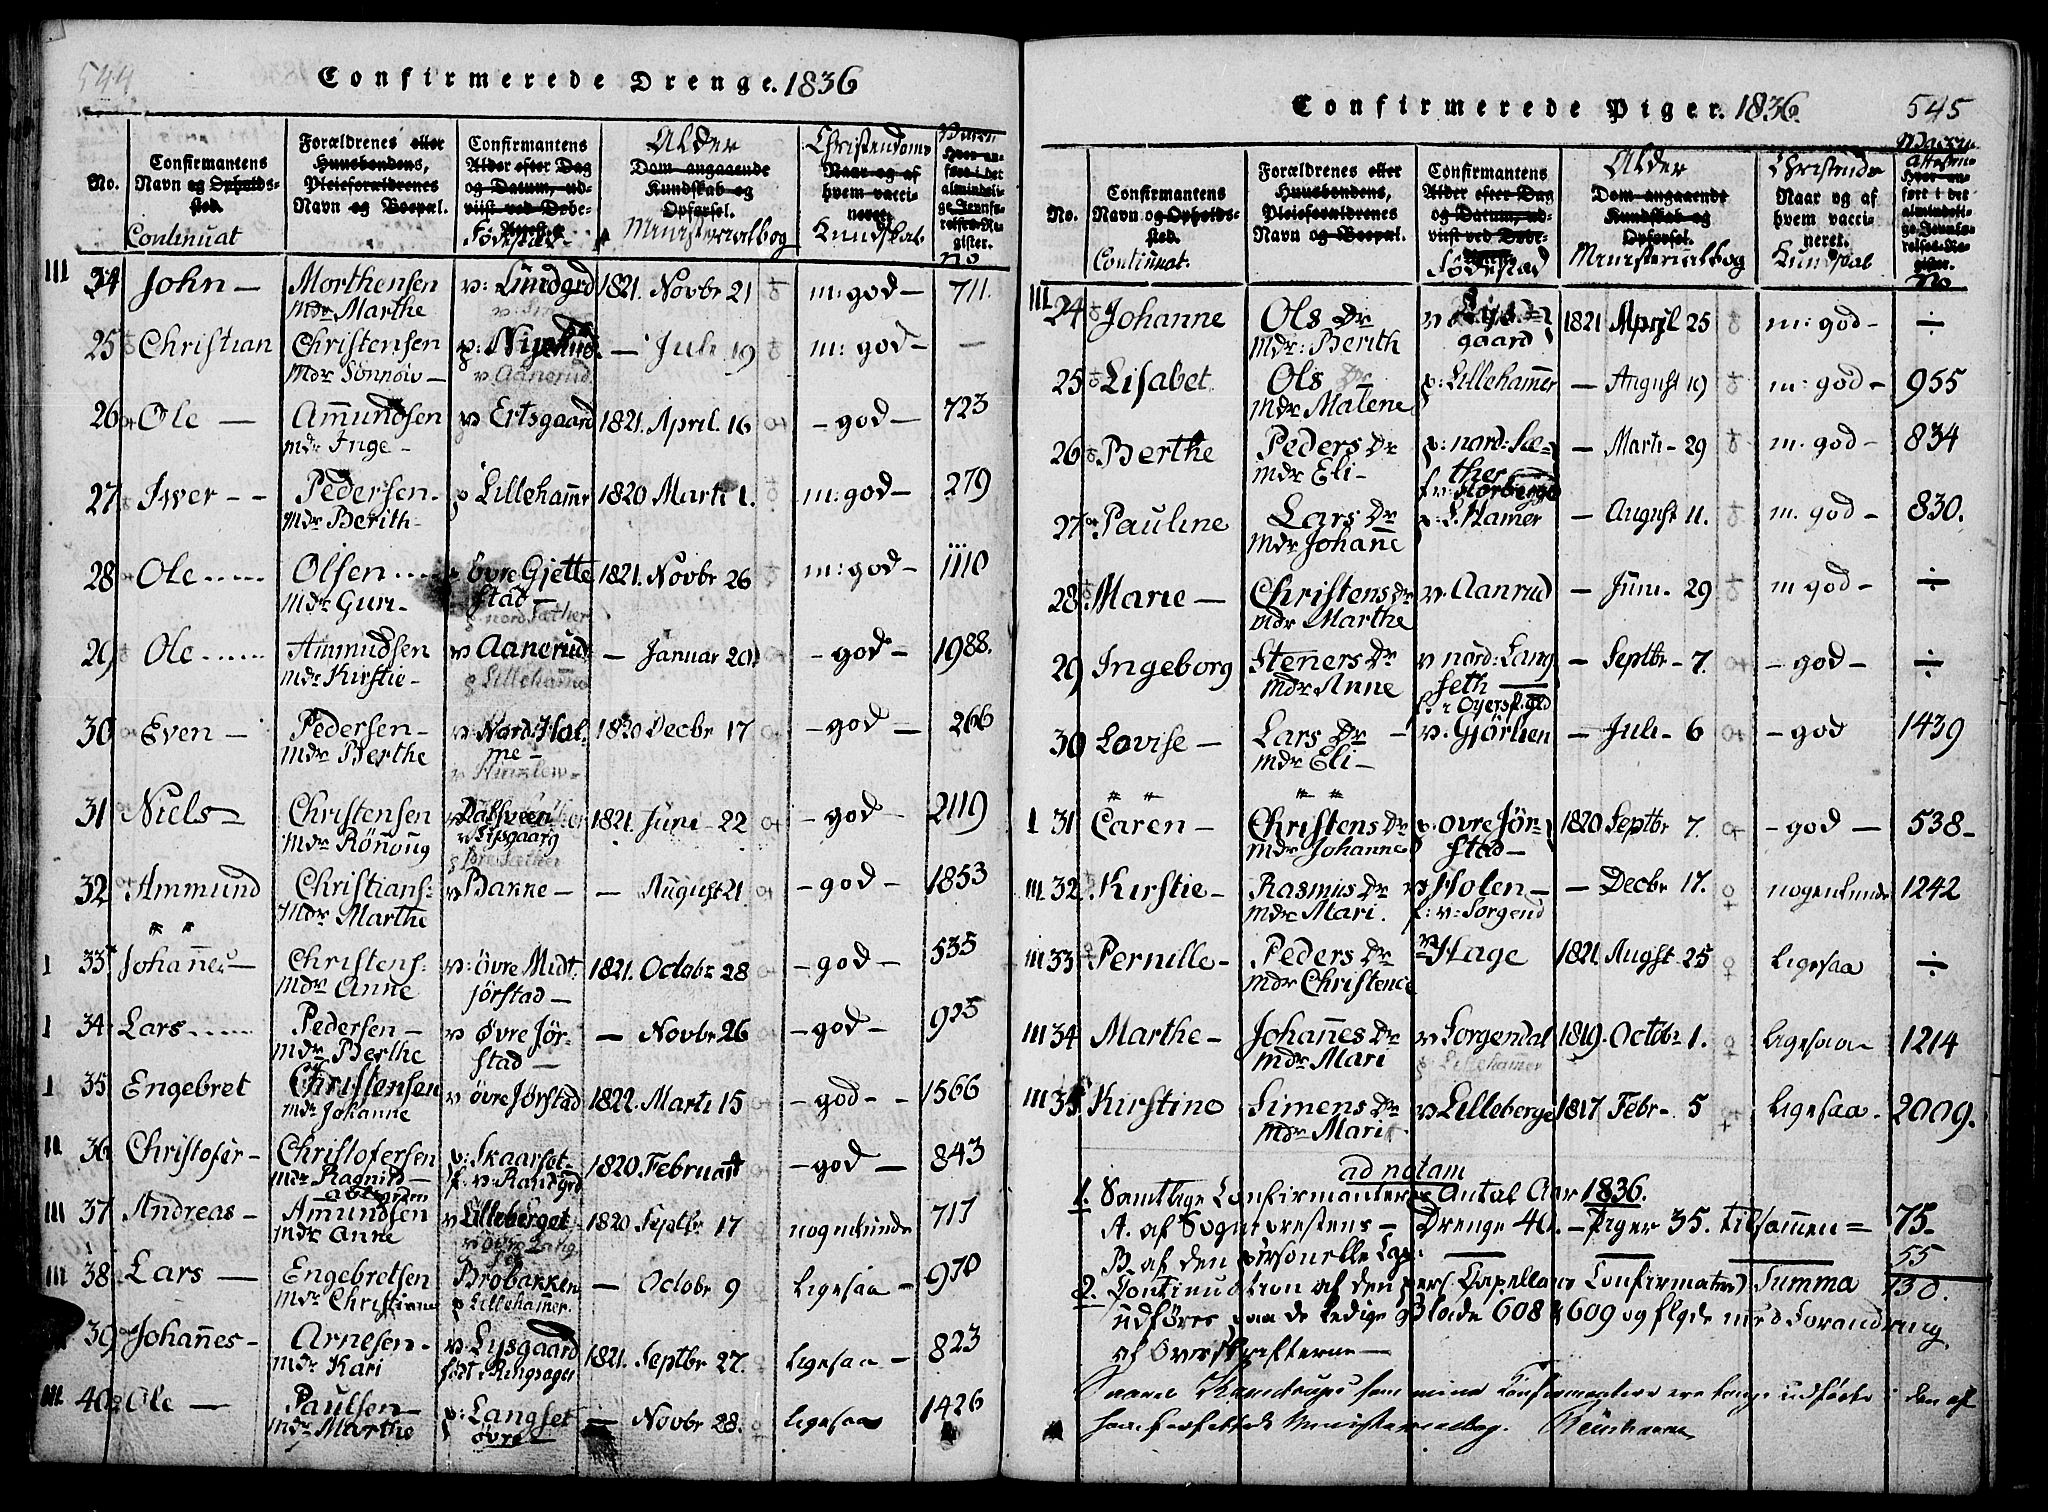 544
Confirmerede Drenge. 1836
No.
Confirmantens Navn og Opholds-sted.
Continuat
Forældrenes eller Huusbondens, Pleieforældrenes Navn og Boepæl.
Confirmantens Alder efter Dag og Datum, ud-viist ved Døbe-
Fødestad
Alder
Dom angaaende Kundskab og Opførsel.
Ministerialbog
Christendoms
Naar og af hvem vacci-neret.
Kundskab
Hvor an-ført i det almindeli-ge Jevnfø-relses-Re-gister.
No
III 24 John — Morthensen v: Lundgrd 1821. Novbr 21 m: god — 711.
Mdr Marthe
25 Christian Christensen — Juli 19 m: god — —
Mdr Sönnöw — v Aanerud
26 Ole — Amundsen v Ertsgaard 1821. April. 16 — god — 723
mdr Inge —
27 Iwer — — Pedersen — p Lillehamr 1820 Marti 1. m: god — 279
Mdr Berith —
28 Ole Olsen øvre Gjette 1821. Novbr 26 m: god — 1110
Mdr Guri — stad —
nord Sæther
29 Ole Ammudsen v Aanerud — Januar 20 — god — 1988.
mdr Kirstie — p Lillehamr
30 Even — Pedersen — v Nord Hol- 1820 Decbr 17 — god — 266
Mdr Berthe me —
31 Niels — Christensen 1821. Juni 22 — god — 2119
Mdr Rönoug v Lysgaard
32 Ammund Christians: v Banne — — August 21. — god — 1853
Mdr Marthe
I 33 Johannes — Christens: v: øvre Midt 1821. Octobr 28 — god — 535
mdr Anne jörstad —
I 34 Lars Pedersen — v Øvre Jör- — Novbr 26 — god — 925
mdr Berthe stad —
I 35 Engebret Christensen v øvre Jörstad 1822. Marti 15 — god — — 1566
mdr Johanne
II 36 Christofer — Christofersen p: Skaarset 1820. Februar — god — 843
mdr Ragnild — f. v: Randgrd
III 37 Andreas — Amundsen v Lilleberget 1820 Septbr 17 nogenkunde 717
mdr Anne v øvre Lang
III 38 Lars — Engebretsen Brobakken — Octobr 9 ligesaa — 970
mdr Christiane p Lillehamer.
39 Johannes — Arnesen — v: Lysgaard 1821. Septbr 27. ligesaa — 823
mdr Kari født Ringsager
III 40 Ole — Paulsen — p: Langset — Novbr 28. ligesaa 1426
mdr Marthe øvre —
Confirmerede Piger. 1836.
545
No.
Confirmantens Navn og Opholds-sted.
Continuat.
Forældrenes eller Huusbondens, Pleieforældrenes Navn og Boepæl.
Confirmantens Alder efter Dag og Datum, ud-viist ved Døbe-
Fødestad
Alder
Dom angaaende Kundskab og Opførsel.
Ministerialbog
Christendo
Naar og af hvem vacci-neret.
Kundskab
Hvor an-ført i det almindeli-ge Jevnfø-relses-Re-gister.
No
III 24 Johanne Ols Dr v Lys= 1821 April 25 m: god — ÷
Mdr: Berith gaard
25 Lisabet Ols Dr — p: Lillehamer — August 19 m: god — 955
mdr Malene
26 Berthe Peders Dr p: nord: Sæ= — Marti — 29 m. god — 834
mdr Eli — ther
f v: Storberget
27 Pauline Lars Dr p: L.Hamer — August 11. m. god — 830.
Mdr Johane
28 Marie — Christens dr v. Aanrud — Juni. 29 m god — ÷
mdr Marthe
29 Ingeborg Steners Dr v nord: Lang — Septbr — 7. — god — ÷
Mdr Anne seth —
f. i Öyers p.gld
30 Lovise — Lars Dr — v. Gjörlien — Juli — 6 — god 1439
Mdr Eli —
I 31 Caren — Christens Dr p: ovre Jör- 1820 Septbr 7. — god — 538 —
mdr Johanne stad —
III 32 Kirstie — Rasmus Dr v Holen — — Decbr 17. nogenkunde 1242
mdr Mari. f: v: Sorgend
III 33 Pernille — Peders Dr v Hage 1821. Augst 25 ligesaa ÷
mdr Christence
III 34 Marthe — Johannes Dr v Sorgendal 1819. Octobr 1. ligesaa — 1214
mdr Mari p: Lillehamer
III 35 Kirstine Simens Dr v Lilleberge 1817 Febr — 5 ligesaa. 2009.
Mdr Mari
ad notam
1. Samtlige Confirmanteres Antal Aar 1836.
A. af Sognepræstens — Drenge 40. — Piger 35. tilsammen = 75 —
B. af den personelle Cap: — — — 55
2. Continuation af den pers. Capellans Confirmater) Summa 130.
udföres paa de ledige Blade 608 & 609 og flgde med Forandring
af Overskrifterne —